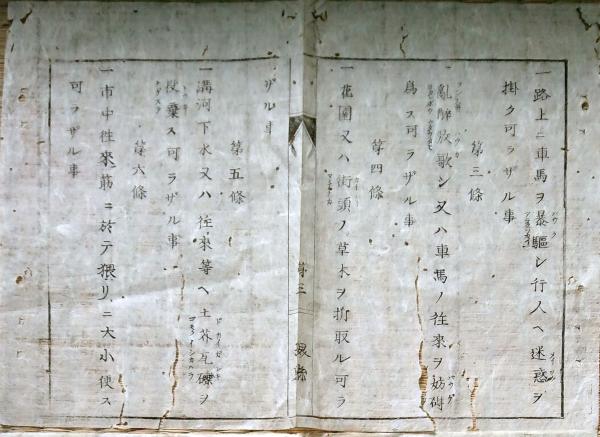 一路上ニ車馬ヲ暴驅シ行人ヘ迷惑ヲ
掛ク可ラザル事
第三條
一亂醉放歌シ又ハ車馬ノ往來ヲ妨碍
爲ス可ラザル事
第四條
一花園又ハ街頭ノ草木ヲ折取ル可ラ
第三
ザル事
第五條
一溝河下水又ハ往來等ヘ土芥瓦礫ヲ
投棄ス可ラザル事
第六條
一市中徃來筋ニ於テ猥リニ大小便ス
可ラザル事